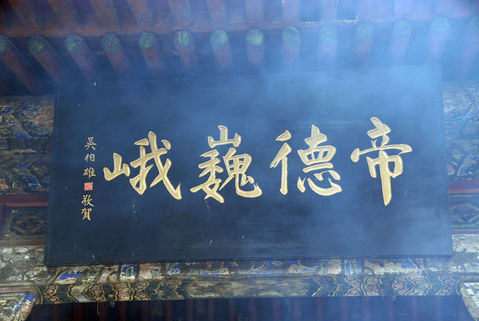 帝德巍峨
吳伯雄
敬賀